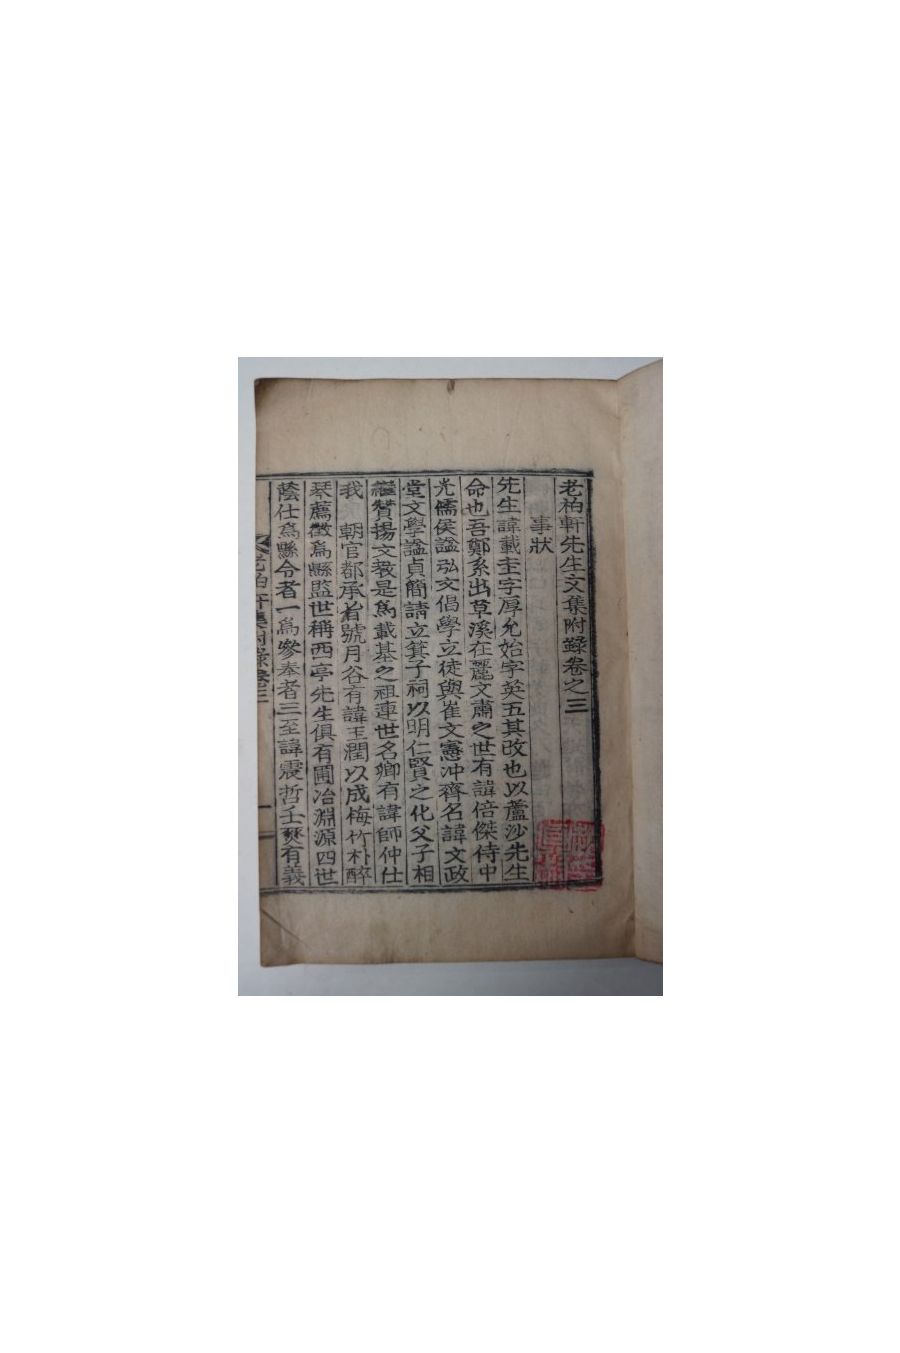 老柏軒先生文集附錄卷之三
事狀
先生諱載圭字厚允始字英五其改也以蘆沙先生
命也吾鄭系出草溪在麗文肅之世有諱倍傑侍中
光儒侯諡弘文倡學立徒與崔文憲冲齊名諱文政
堂文學諡貞簡請立箕子祠以明仁賢之化父子相
繼贊揚文敎是爲載基之祖連世名卿有諱師仲仕
我 朝官都承旨號月谷有諱玉潤以成梅竹朴醉
琴薦徵爲縣監世稱西亭先生俱有圃冶淵源四世
蔭仕爲縣令者一爲參奉者三至諱震哲壬燹有義
老柏軒集附錄卷三